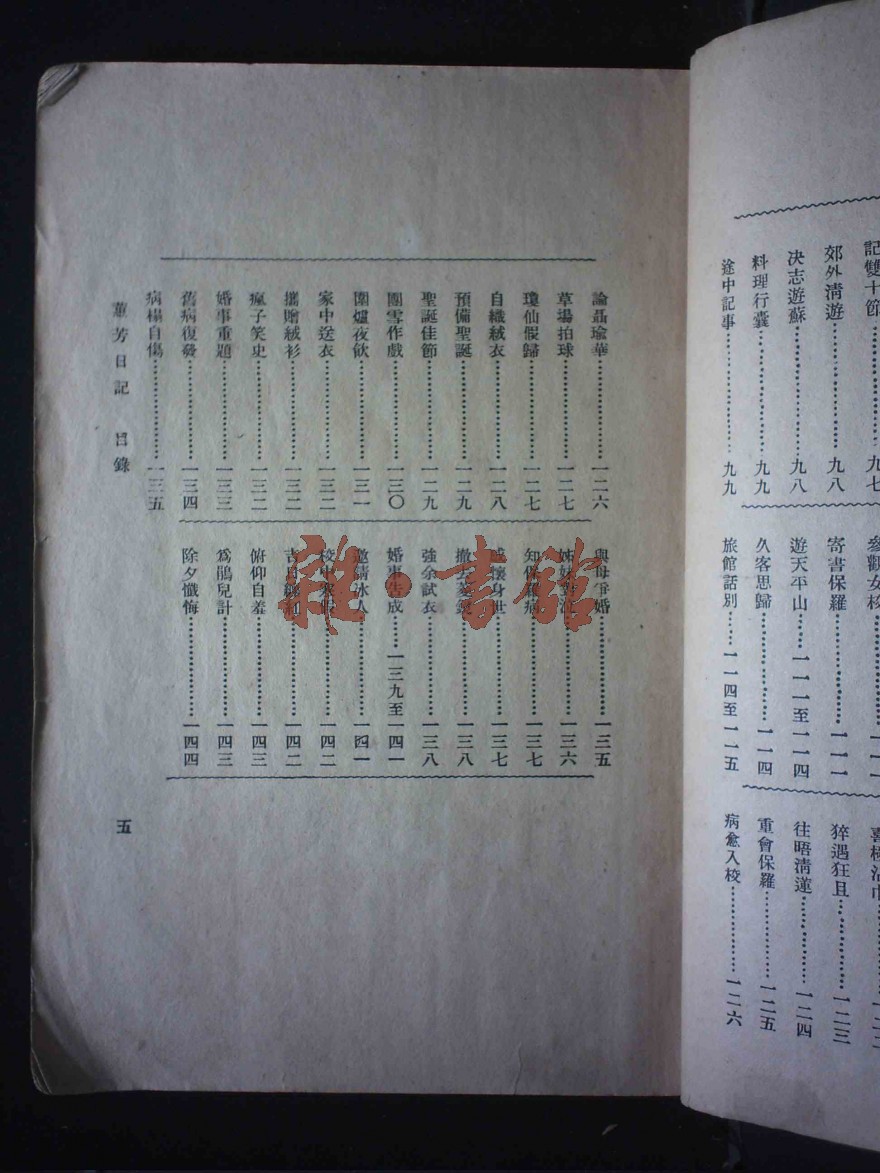 記雙十節……九七
郊外清遊……九八
決志遊蘇……九八
料理行囊……九九
途中記事……九九
參觀女校……一一一
寄書保羅……一一一
遊天平山……一一一至一一四
久客思歸……一一四
旅館話別……一一四至一一五
猝遇狂且……一二三
往晤清蓮……一二四
重會保羅……一二五
病愈入校……一二六
論聶瑜華……一二六
草場拍球……一二七
瓊仙假歸……一二七
自織絨衣……一二八
預備聖誕……一二九
聖誕佳節……一二九
團雪作戲……一三〇
圍爐夜飲……一三一
家中送衣……一三二
攜贈絨衫……一三二
瘋子笑史……一三二
婚事重題……一三三
舊病復發……一三四
病榻自傷……一三五
與母爭婚……一三五
姊妹對泣……一三六
知保羅病……一三七
感懷身世……一三七
撤去菱鏡……一三八
強余試衣……一三八
婚事告成……一三九至一四一
邀請冰人……一四一
校中寒假……一四二
吉日……一四二
俯仰自羞……一四三
爲鵑兒計……一四三
除夕懺悔……一四四
蕙芳日記 目錄
五
雜·書館